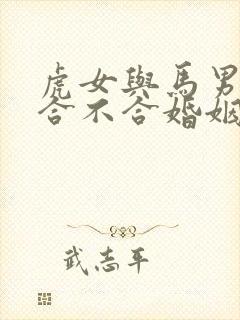 虎女與馬男
合不合婚姻
武志平